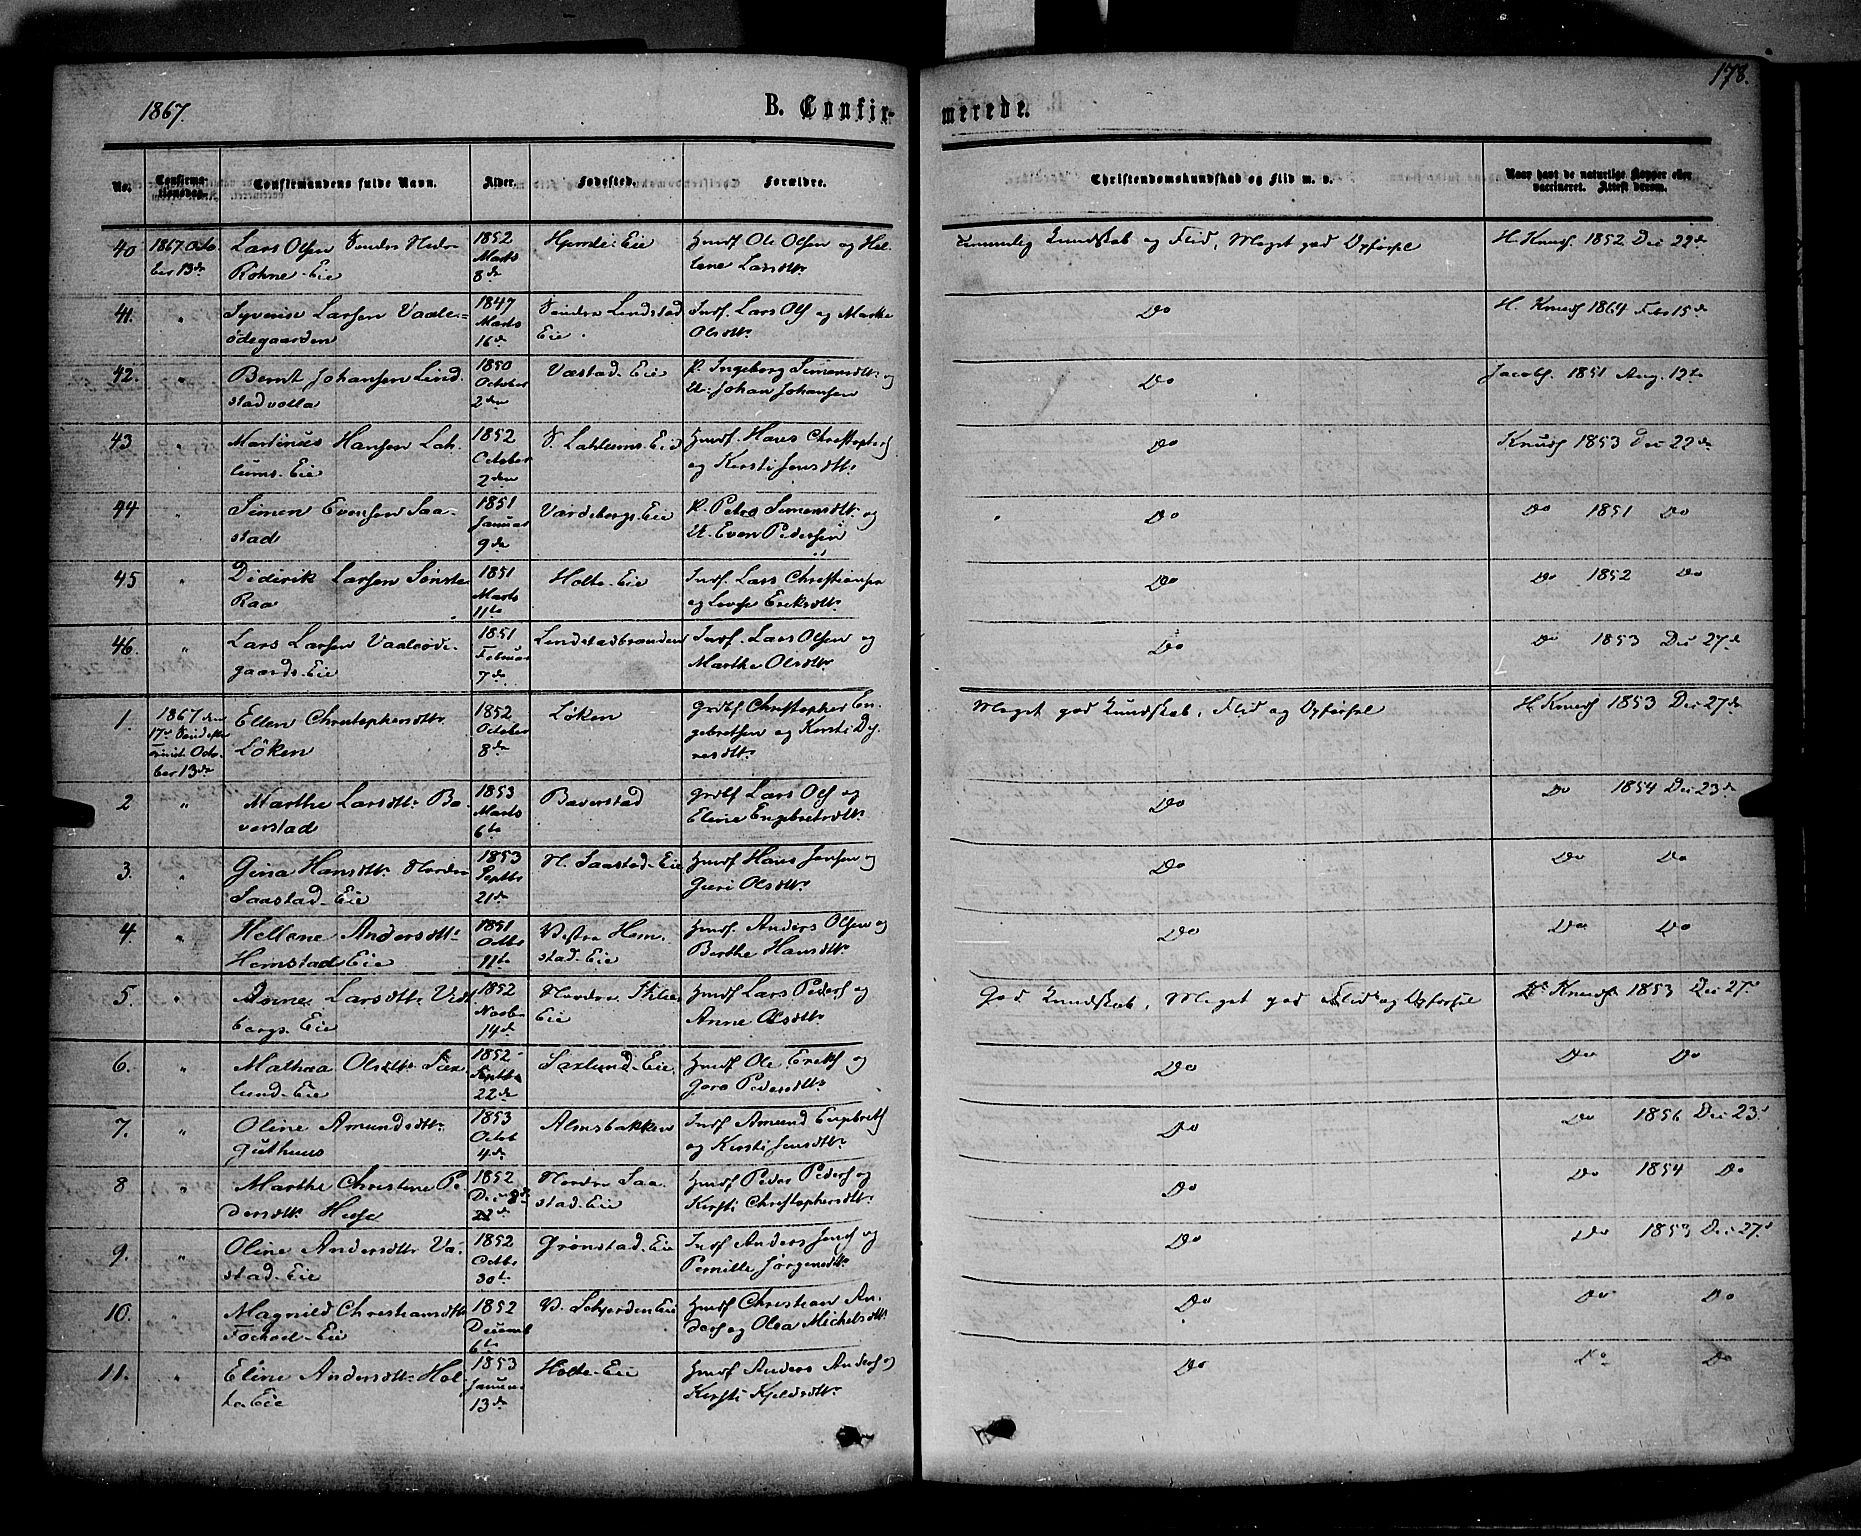 1867.
B. Confirmerede.
178.
No. Confirmationsdag. Confirmandens fulde Navn. Alder. Fødested. Forældre. Christendomskundskab og Flid m. v. Naar havt de naturlige Kopper eller vaccineret. Attest derom.
40 1867 October 13de Lars Olsen Søndre Nedre 1852 Marts 8de Hemli Eie Husmd Ole Olsen og Hellene Larsdtr Temmelig Kundskab og Flid, Meget god Opførsel H. Knuds. 1852 Dec 22de
Rohne Eie
41. " Syverin Larsen Vaaleødegaarden 1847 Marts 16de Søndre Lindstad Eie. Inds. Lars Ols og Marthe Olsdtr Do H. Knuds 1864 Feb 15de
42. " Bernt Johansen Lindstadvolla 1850 October 2den Vastad Eie P. Ingeborg Simensdtr og U. Johan Johansen Do Jacobs. 1851 Aug. 12te
43 " Martinus Hansen Lahlums Eie 1852 October 2den S. Lahlums Eie Husmd. Hans Christophers og Kersti Jensdtr Do Knuds 1853 Dec 22de
44 " Simen Evensen Saastad 1851 Januar 9de Vardebergs Eie P. Petra Simensdtr og U. Even Pedersen Do Do 1851 Do
45 " Diderik Larsen Sønste Raa 1851 Marts 11te Holte Eie Inds. Lars Christiansen og Lovise Eriksdtr Do Do 1852 Do
46. " Lars Larsen Vaaleødegaards Eie 1851 Februar 7de Lindstadbraaden Inds. Lars Olsen og Marthe Olsdtr Do Do 1853 Dec 27de
1. 1867 den 17de Sønd efter Trinit. October 13de Ellen Christophersdtr Løken 1852 October 8de Løken Grdbr Christopher Engebretsen og Kersti Dyresdtr Meget god Kundskab, Flid og Opførsel H Knuds 1853 Dec 27de
2 " Marthe Larsdtr Baverstad 1853 Marts 6te Baverstad Grdbr Lars Ols og Eline Engebretsdtr Do Do 1854 Dec 23de
3. " Gina Hansdtr Nordre Saastad Eie 1853 Septbr 21de N. Saastad Eie Husmd Hans Jensen og Guri Olsdtr Do Do Do
4. " Hellene Andersdtr Hemstad Eie 1851 Octbr 11te Vestre Hemstad Eie Husmd. Anders Olsen og Berthe Hansdtr Do Do Do
5. " Anne Larsdtr Vidtbergs Eie 1852 Novbr 14de Nordre Eie Husmd Lars Peders og Anne Olsdtr God Kundskab, Meget god Flid og Opførsel H. Knuds. 1853 Dec 27de
6. " Mathea Olsdtr Saxlund Eie 1852 Septbr 22de Saxlund Eie Husmd Ole Eriks og Goro Pedersdtr Do Do Do
7. " Oline Amundsdtr Guthuus 1853 Octob 4de Almsbakken Inds Amund Engebrets og Kersti Jensdtr Do Do 1856 Dec 23de
8 " Marthe Christine Pedersdtr Huse 1852 Dec 8de Nordre Saastad Eie Husmd Peder Peders og Kersti Christophersdtr Do Do 1854 Do
9. " Oline Andersdtr Vastad Eie 1852 Octbr 30te Grønstad Eie Inds Anders Jens og Pernille Jørgensdtr Do Do 1853 Dec 27de
10. " Magnild Christiansdtr Eie 1852 Decemb 6te V. Skjerden Eie Husmd Christian Anders og Olea Michelsdtr Do Do Do
11. " Eline Andersdtr Holte Eie 1853 Januar 13de Holte Eie Husmd Anders Anders og Kersti Kjeldsdtr Do Do Do